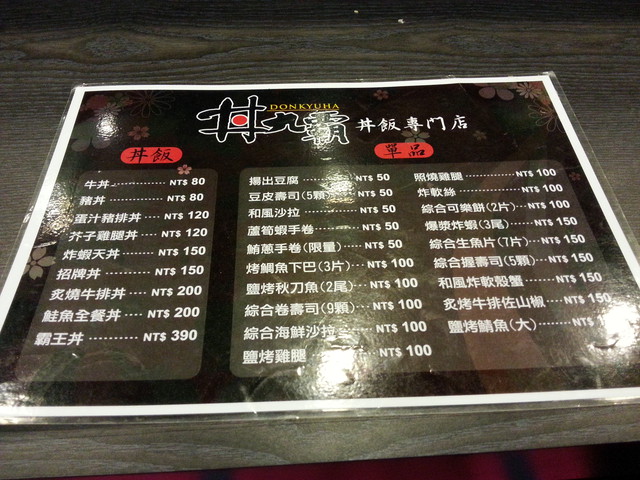 DONKYUHA
丼九霸 丼飯專門店
丼飯
牛丼 NT$ 80
豬丼 NT$ 80
蛋汁豬排丼 NT$ 120
芥子雞腿丼 NT$ 120
炸蝦天丼 NT$ 150
招牌丼 NT$ 150
炙燒牛排丼 NT$ 200
鮭魚全餐丼 NT$ 200
霸王丼 NT$ 390
單品
揚出豆腐 NT$ 50
豆皮壽司(5顆) NT$ 50
和風沙拉 NT$ 50
蘆筍蝦手卷 NT$ 50
鮪蔥手卷(限量) NT$ 50
烤鯛魚下巴(3片) NT$ 100
鹽烤秋刀魚(2尾) NT$ 100
綜合卷壽司(9顆) NT$ 100
綜合海鮮沙拉 NT$ 100
鹽烤雞腿 NT$ 100
照燒雞腿 NT$ 100
炸軟絲 NT$ 100
綜合可樂餅(2片) NT$ 100
爆漿炸蝦(3尾) NT$ 150
綜合生魚片(7片) NT$ 150
綜合握壽司(5顆) NT$ 150
和風炸軟殼蟹 NT$ 150
炙烤牛排佐山椒 NT$ 150
鹽烤鯖魚(大) NT$